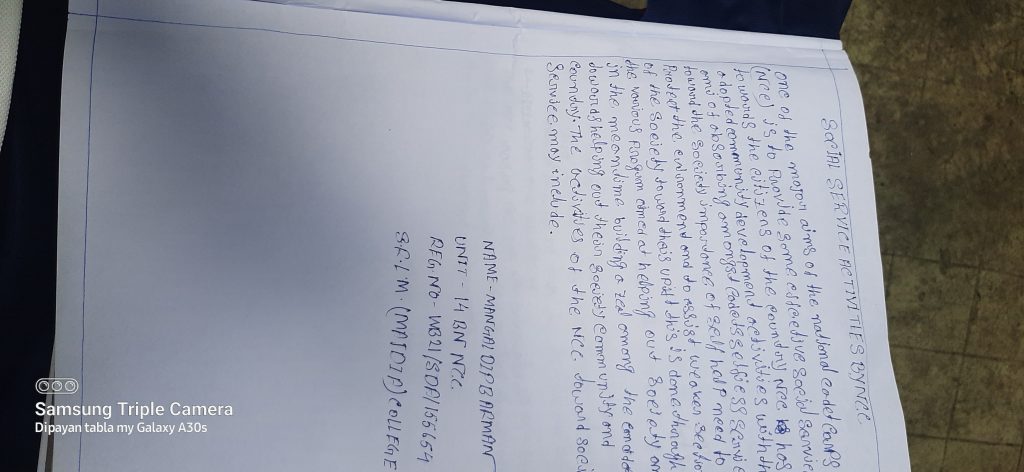 SOCIAL SERVICE ACTIVITIES BY NCC
One of the major aims of the national cadet Corps
(NCC) is to Provide some effective social service
towards the citizens of the country NCC has
adopted community development activities with th
aim of absorbing amongst cadets selfless service
toward the society importance of self help need to
Protect the environment and to assist weaker sectio
of the society toward their uplift this is done through
the various Program aimed at helping out society an
in the meantime building a zeal among the
towards helping out their society community and
country. The activities of the NCC toward soci
Service may include.
NAME - MANGALDIP BARMAN
UNIT - 14 BN NCC
REG NO - WB21/SDA/
S.R.L.M. COLLEGE
Samsung Triple Camera
Dipayan tabla my Galaxy A30s